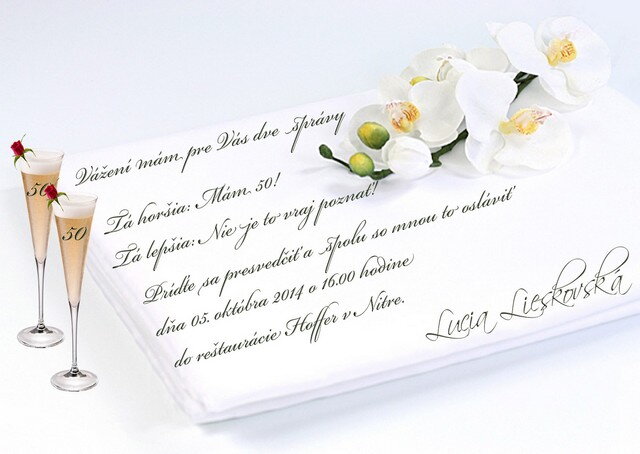 Vážení mám pre Vás dve správy
Tá horšia: Mám 50!
Tá lepšia: Nie je to vraj poznať!
Príďte sa presvedčiť a spolu so mnou to osláviť
dňa 05. októbra 2014 o 16.00 hodine
do reštaurácie Hoffer v Nitre.
Lucia Lieskovská
50
50